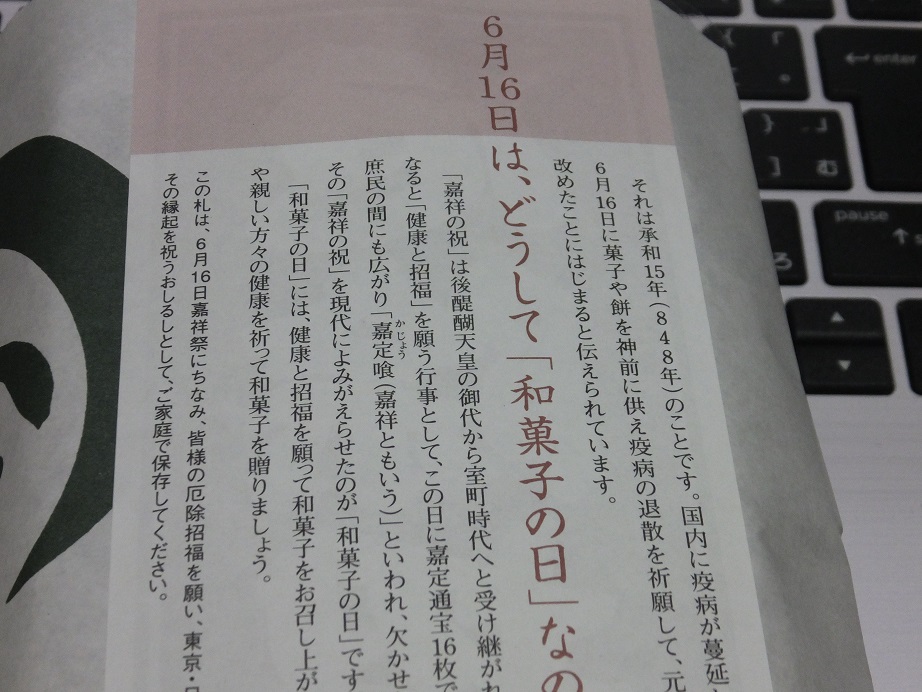 6月16日は、どうして「和菓子の日」なの
それは承和15年(848年)のことです。国内に疫病が蔓延
6月16日に菓子や餅を神前に供え疫病の退散を祈願して、元
改めたことにはじまると伝えられています。
「嘉祥の祝」は後醍醐天皇の御代から室町時代へと受け継がれ
なると「健康と招福」を願う行事として、この日に嘉定通宝16枚で
庶民の間にも広がり「嘉定喰(嘉祥ともいう)」といわれ、欠かせ
かじょう
その「嘉祥の祝」を現代によみがえらせたのが「和菓子の日」です
「和菓子の日」には、健康と招福を願って和菓子をお召し上が
や親しい方々の健康を祈って和菓子を贈りましょう。
この札は、6月16日嘉祥祭にちなみ、皆様の厄除招福を願い、東京・日
その縁起を祝うおしるしとして、ご家庭で保存してください。
enter
む
ろ
pause